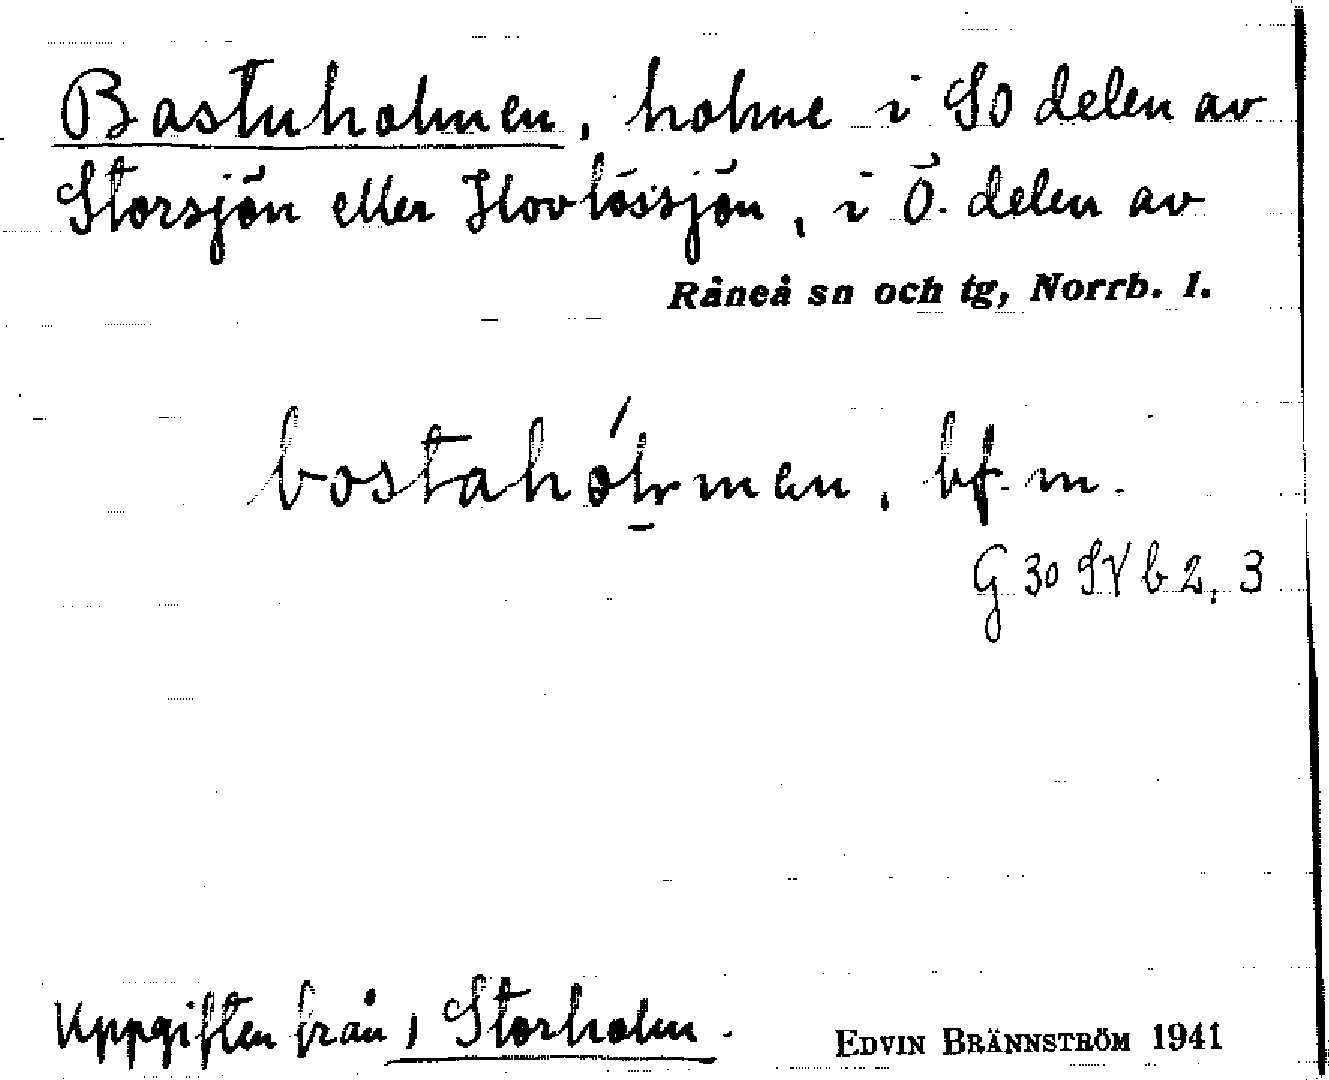 Bastuholmen, holme i SO delen av
Storsjön eller Hovlössjön, i Ö. delen av
Råneå sn och tg, Norrb. l.
bostahólmen, bf. m.
G 30 SV b 2, 3
Uppgiften från 1 Storholm.
EDVIN BRÄNNSTRÖM 1941